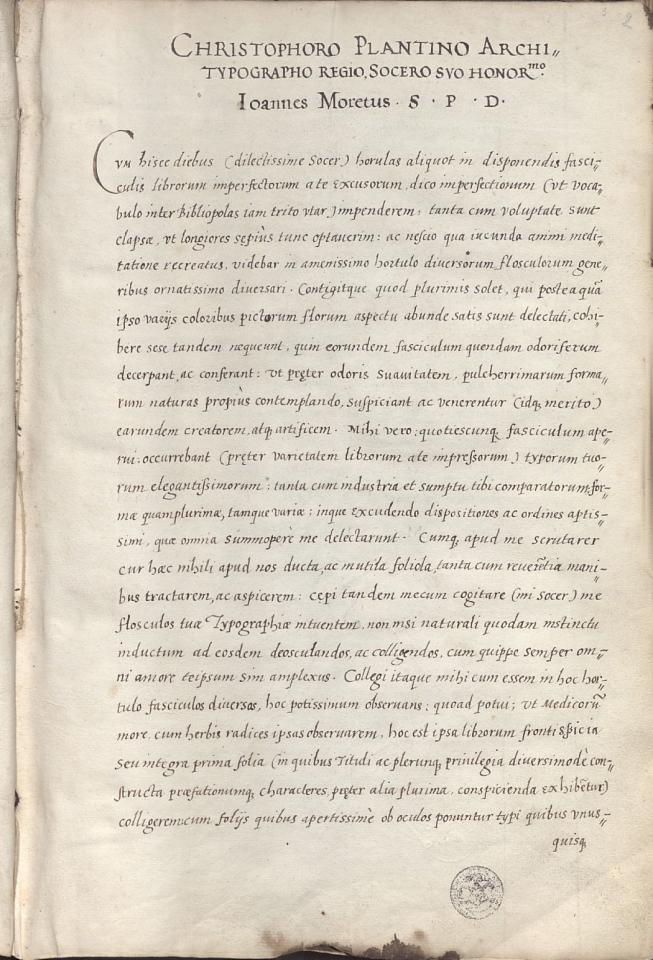 CHRISTOPHORO PLANTINO ARCHI,,
TYPOGRAPHO REGIO, SOCERO SVO HONOR.mo
Ioannes Moretus · S · P · D ·
CVM hisce diebus (dilectissime Socer) horulas aliquot in disponendis fasci,,
culis librorum imperfectorum a te excusorum, dico imperfectionum (vt voca,,
bulo inter Bibliopolas iam trito vtar) impenderem; tanta cum voluptate sunt
elapsæ, vt longiores sępiùs tunc optauerim: ac nescio qua iucunda animi medi,,
tatione recreatus, videbar in amenissimo hortulo diuersorum flosculorum gene,,
ribus ornatissimo diuersari. Contigitque quod plurimis solet, qui posteaquā
ipso varijs coloribus pictorum florum aspectu abunde satis sunt delectati, cohi,,
bere sese tandem nęqueunt, quin eorundem fasciculum quendam odoriferum
decerpant, ac conferant: vt pręter odoris suauitatem, pulcherrimarum forma,,
rum naturas propiùs contemplando, suspiciant ac venerentur (idq; merito)
earundem creatorem, atq; artificem. Mihi vero, quotiescunq; fasciculum ape,,
rui, occurrebant (pręter varietatem librorum a te impressorum) typorum tuo,,
rum elegantissimorum; tanta cum industria et sumptu tibi comparatorum, for,,
mæ quamplurimæ, tamque variæ; inque excudendo dispositiones ac ordines aptis,,
simi, quæ omnia summoperè me delectarunt. Cumq; apud me scrutarer
cur hæc nihili apud nos ducta, ac mutila foliola, tanta cum reuerētia mani,,
bus tractarem, ac aspicerem: cępi tandem mecum cogitare (mi Socer) me
flosculos tuæ Typographiæ intuentem, non nisi naturali quodam instinctu
inductum ad eosdem deosculandos, ac colligendos, cum quippe semper om,,
ni amore teipsum sim amplexus. Collegi itaque mihi cum essem in hoc hor,,
tulo fasciculos diuersos, hoc potissimum obseruans; quoad potui; vt Medicorū
more, cum herbis radices ipsas obseruarem, hoc est ipsa librorum frontispicia
seu integra prima folia (in quibus Tituli ac plerunq; priuilegia diuersimodè con,,
structa præfationumq; characteres, pręter alia plurima, conspicienda exhibētur)
colligerem: cum folijs quibus apertissimè ob oculos ponuntur typi quibus vnus,,
quisq;